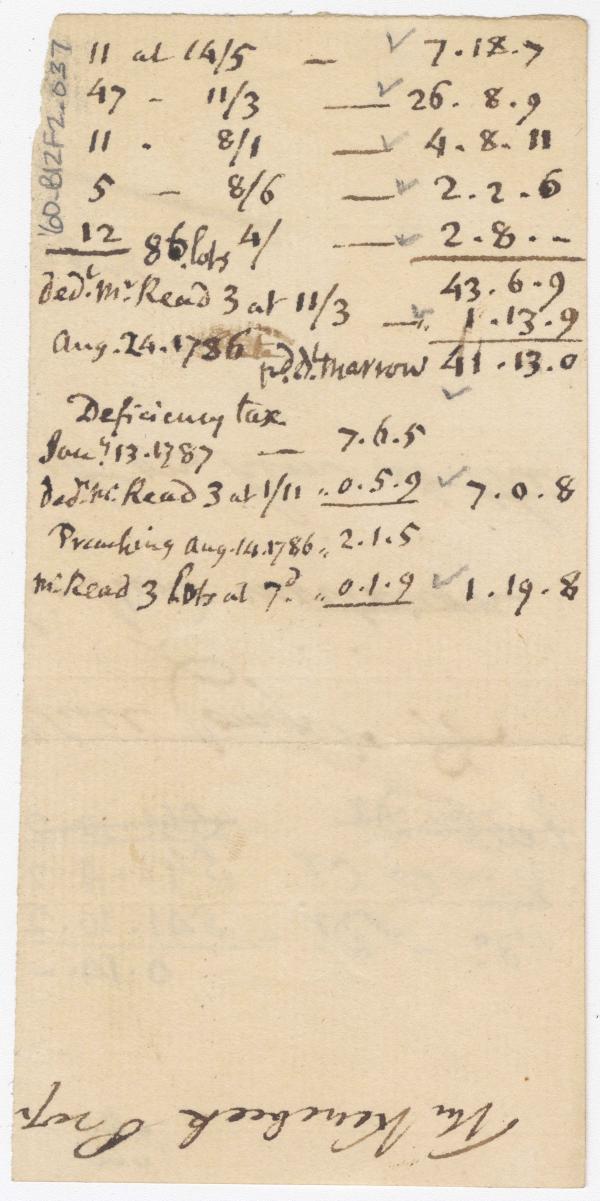 11 at 14/5 — 7.18.7
47 - 11/3 — 26.8.9
11 . 8/1 — 4.8.11
5 — 8/6 — 2.2.6
12 86 lots 4/ — 2.8.-
43.6.9
Ded.t Mr. Read 3 at 11/3 — 1.13.9
Aug. 24. 1786 Marrow 41.13.0
Deficiency tax
Jan.y 13. 1787 — 7.6.5
Ded. Mr. Read 3 at 1/11 " 0.5.9 7.0.8
Preaching Aug. 14. 1786 " 2.1.5
Mr. Read 3 Lots at 7d. " 0.1.9 1.19.8
Kenebeck Prop
160-B12F2.037